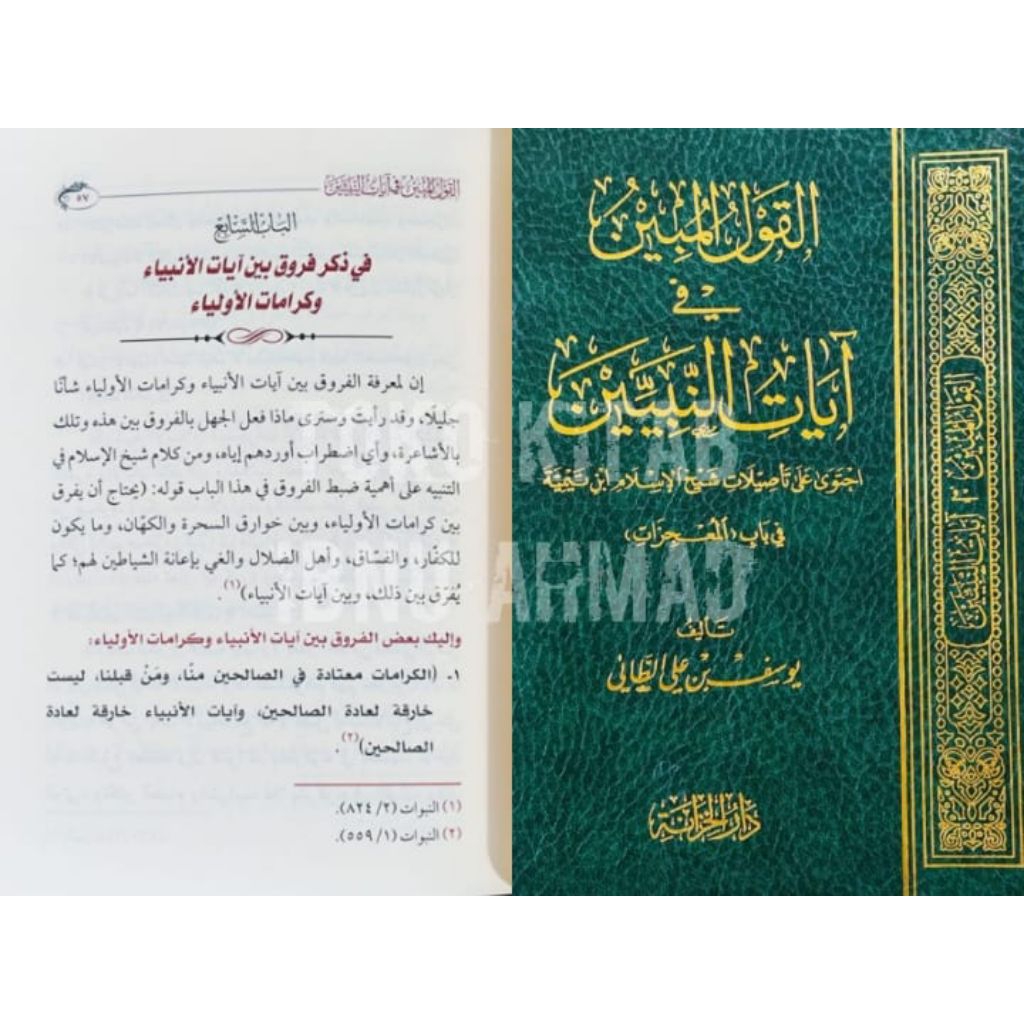 القول المبين في آيات النبيين
٥٧
الباب السابع
في ذكر فروق بين آيات الأنبياء
وكرامات الأولياء
إن لمعرفة الفروق بين آيات الأنبياء وكرامات الأولياء شأنًا
جليلًا، وقد رأيت وسترى ماذا فعل الجهل بالفروق بين هذه وتلك
بالأشاعرة، وأي اضطراب أوردهم إياه، ومن كلام شيخ الإسلام في
التنبيه على أهمية ضبط الفروق في هذا الباب قوله: (يحتاج أن يفرق
بين كرامات الأولياء، وبين خوارق السحرة والكهّان، وما يكون
للكفّار، والفسّاق، وأهل الضلال والغي بإعانة الشياطين لهم؛ كما
يُفرّق بين ذلك، وبين آيات الأنبياء)(١).
وإليك بعض الفروق بين آيات الأنبياء وكرامات الأولياء:
١- (الكرامات معتادة في الصالحين منّا، ومَنْ قبلنا، ليست
خارقة لعادة الصالحين، وآيات الأنبياء خارقة لعادة
الصالحين)(٢).
(١) النبوات (٢/ ٨٢٤).
(٢) النبوات (١/ ٥٥٩).
القَوْلُ المُبِينُ
في
آيَاتِ النَّبِيِّينَ
احْتَوَى عَلَى تَأْصِيلَاتِ شَيْخِ الإِسْلَامِ ابْنِ تَيْمِيَّةَ
في بَابِ (المُعْجِزَاتِ)
تَأْلِيف
يوسف بن علي الطائي
دَارُ الخِزَانَةِ
القول المبين في آيات النبيين
TOKO KITAB
IBNU AHMAD